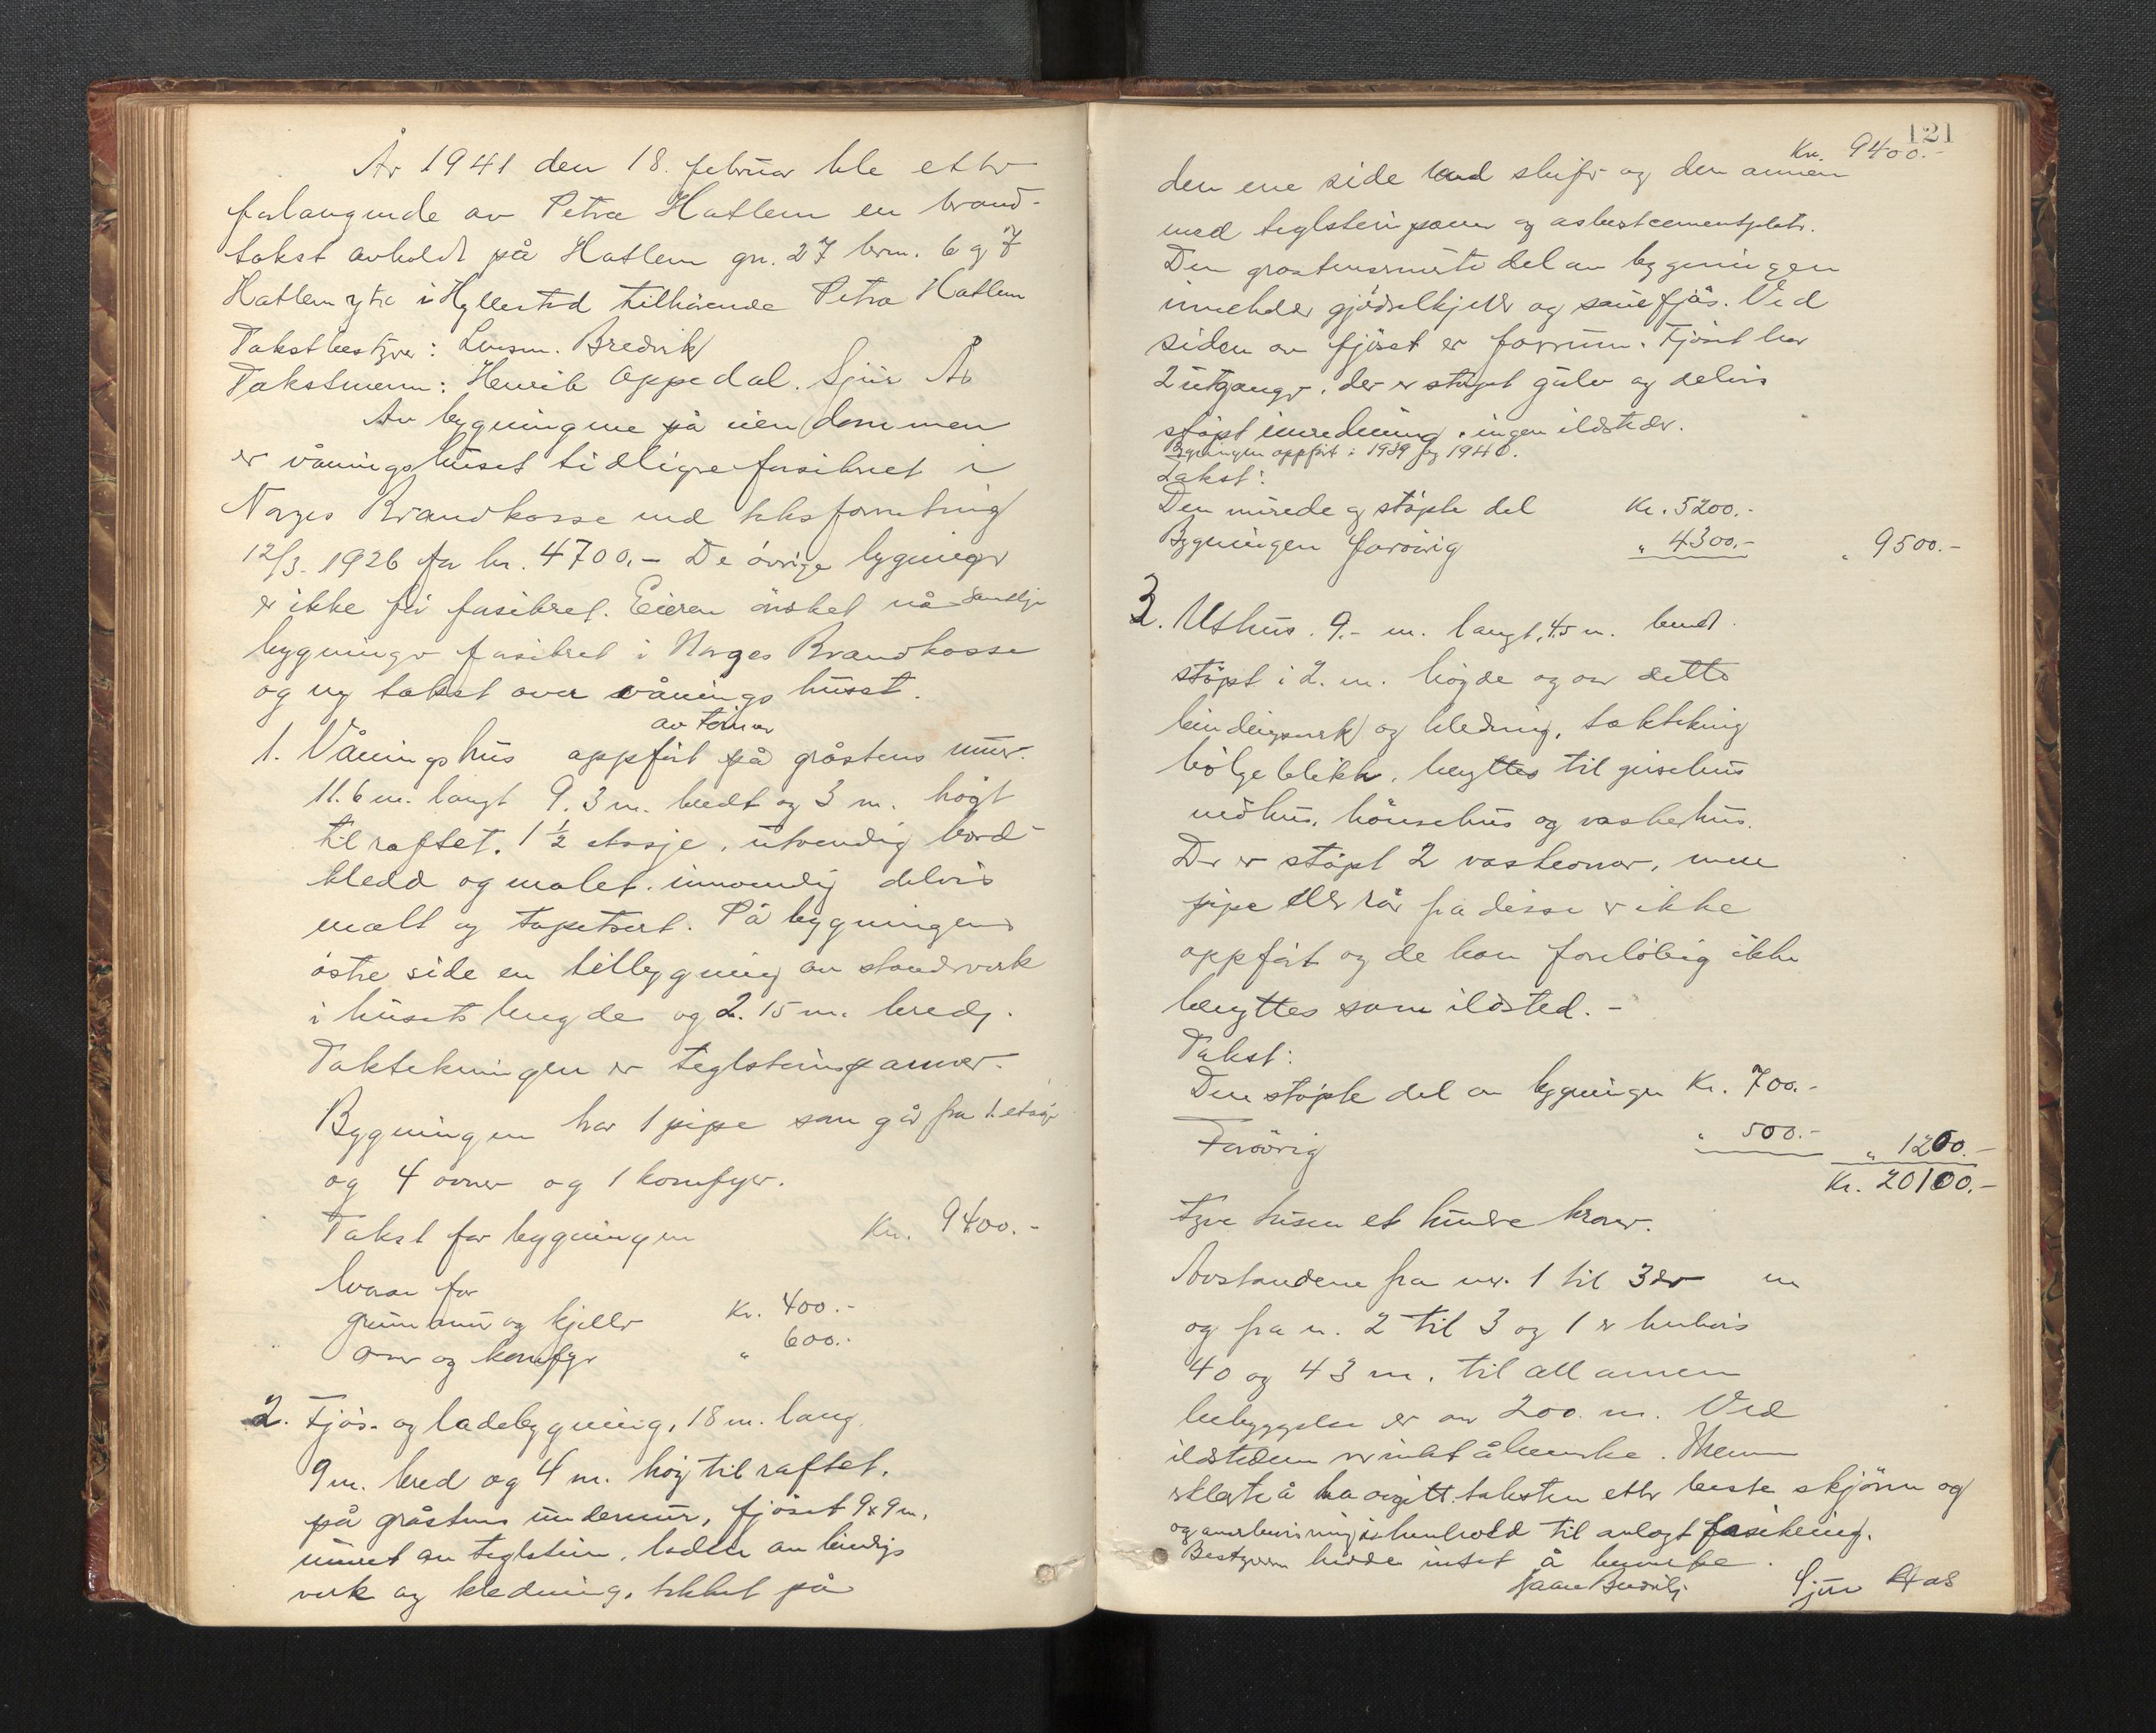 År 1941 den 18. februar ble etter
forlangende av Petra Hatlem en brand-
takst avholdt på Hatlem gn. 27 brn. 6 og 7
Hatlem ytre i Hyllestad tilhörende Petra Hatlem
Takstbestyrer: Lensm. Bredvik
Takstmenn: Henrik Oppedal. Sjur Ås
Av bygningene på eiendommen
er våningshuset tidligere forsikret i
Norges Brandkasse ved takstforretning
12/3. 1926 for kr. 4700.- De övrige bygninger
er ikke för forsikret. Eieren önsket nå samtlige
bygninger forsikret i Norges Brandkasse
og ny takst over våningshuset.
av tömmer
1. Våningshus oppfört på gråstens mur.
11.6 m. langt 9.3 m. bredt og 3 m. högt
til raftet. 1 1/2 etasje, utvendig bord-
kledd og malet. innvendig delvis
malt og tapetsert. På bygningens
östre side en tilbygning av standverk
i husets lengde og 2.15 m. bred.
Taktekningen er teglstenspanner.
Bygningen har 1 pipe som går fra 1. etasje
og 4 ovner og 1 komfyr.
Takst for bygningen Kr. 9400.-
hvorav for
grunnmur og kjeller Kr. 400.-
ovner og komfyr " 600.-
2. Fjös- og ladebygning, 18 m. lang
9 m. bred og 4 m. höy til raftet.
på gråstens undermur, fjöset 9x9 m.
muret av teglsten. laden av bindings
verk og kledning, tekket på
121
Kr. 9400.-
den ene side med skifer og den annen
med teglstenspanner og asbestcementplater.
Den gråstensmurte del av bygningen
inneholder gjödselkjeller og sauefjös. Ved
siden av fjöset er forrum. Fjöset har
2 utganger, der er stöpt gulv og delvis
stöpt innredning. ingen ildsteder.
Bygningen oppfört i 1939 og 1940.
Takst:
Den murede og stöpte del Kr. 5200.-
Bygningen forövrig " 4300.- " 9500.-
3. Uthus. 9.- m. langt, 4.5 m. bredt
stöpt i 2. m. högde og over dette
bindingsverk og kledning, taktekning
bölgeblikk, benyttes til grisehus
vedhus, hönsehus og vaskehus.
Der er stöpt 2 vaskeovner, men
pipe eller rör fra disse er ikke
oppfört og de kan forelöbig ikke
benyttes som ildsted. -
Takst:
Den stöpte del av bygningen Kr. 700.-
Forövrig " 500.- " 1200.-
Kr. 20100.-
tyve tusen et hundre kroner.
Avstandene fra nr. 1 til 3 er m
og fra n. 2 til 3 og 1 er henhvis
40 og 43 m. til all annen
bebyggelse er over 200 m. Ved
ildstedene er intet å bemerke. Mennene
erklærte å ha avgitt taksten etter beste skjönn og
og overbevisning i henhold til avlagt forsikring.
Bestyreren hadde intet å bemerke.
Bredvik Sjur Aas